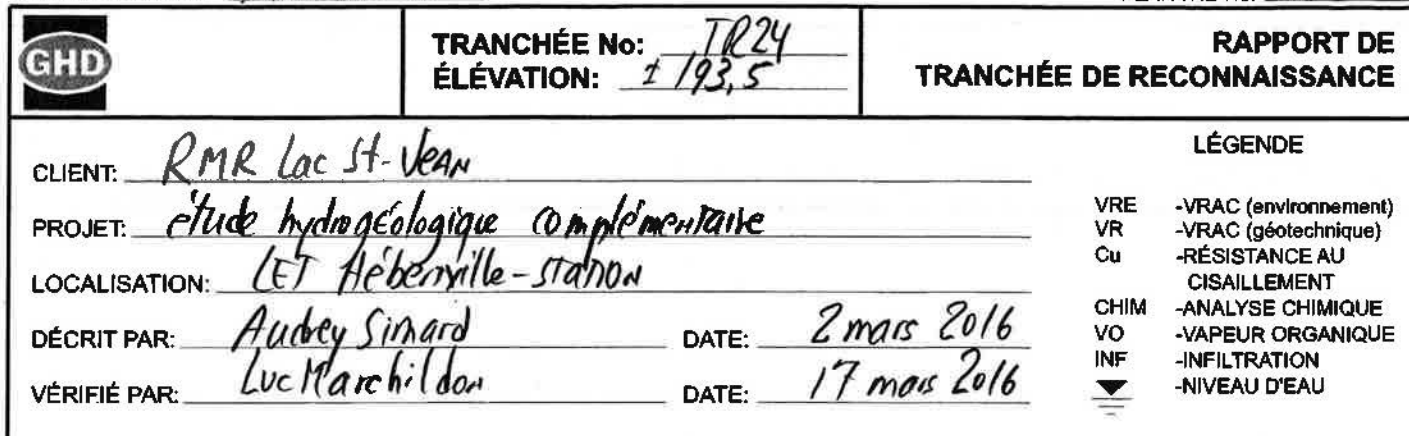 GHD
TRANCHÉE No: TR24
ÉLÉVATION: ± 193,5
RAPPORT DE
TRANCHÉE DE RECONNAISSANCE
CLIENT: RMR Lac St-Jean
PROJET: étude hydrogéologique complémentaire
LOCALISATION: LET Hébertville-Station
DÉCRIT PAR: Audrey Simard DATE: 2 mars 2016
VÉRIFIÉ PAR: Luc Marchildon DATE: 17 mars 2016
LÉGENDE
VRE -VRAC (environnement)
VR -VRAC (géotechnique)
Cu -RÉSISTANCE AU
CISAILLEMENT
CHIM -ANALYSE CHIMIQUE
VO -VAPEUR ORGANIQUE
INF -INFILTRATION
-NIVEAU D'EAU